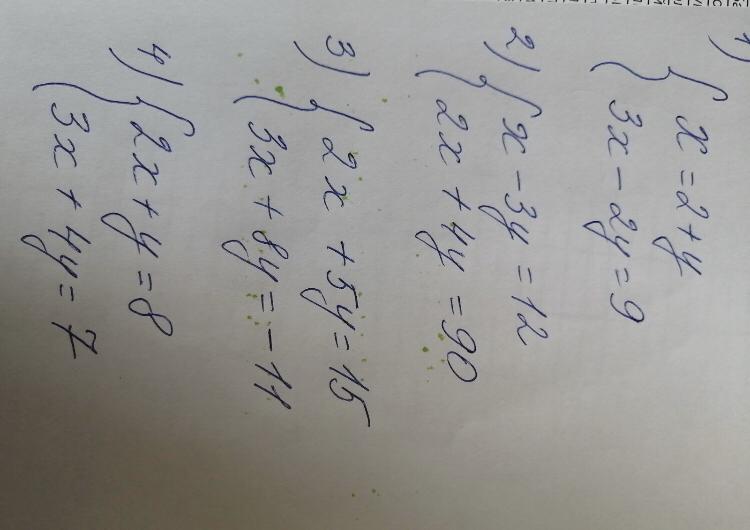 1) { x = 2 + y
3x - 2y = 9
2) { x - 3y = 12
2x + 4y = 90
3) { 2x + 5y = 15
3x + 8y = -11
4) { 2x + y = 8
3x + 4y = 7